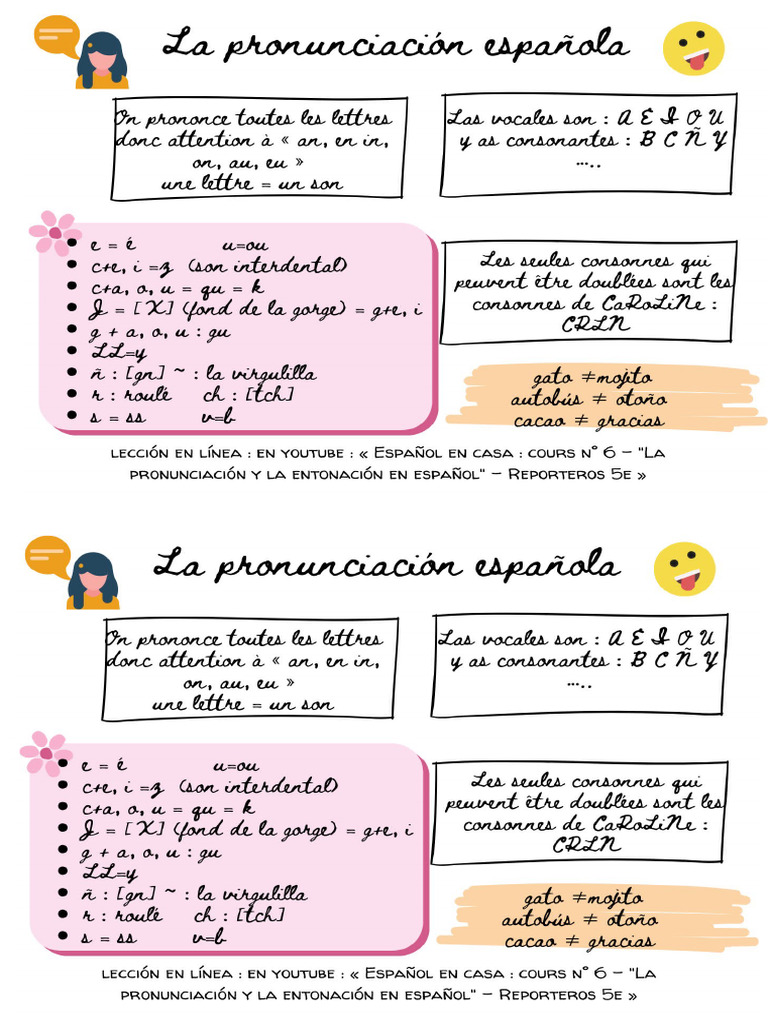 La pronunciación española
On prononce toutes les lettres
donc attention à « an, en in,
on, au, eu »
une lettre = un son
Las vocales son : A E I O U
y as consonantes : B C Ñ Y
.....
• e = é u=ou
• c+e, i =z (son interdental)
• c+a, o, u = qu = k
• J = [ X] (fond de la gorge) = g+e, i
• g + a, o, u : gu
• LL=y
• ñ : [gn] ~ : la virgulilla
• r : roulé ch : [tch]
• s = ss v=b
Les seules consonnes qui
peuvent être doublées sont les
consonnes de CaRoLiNe :
CRLN
gato ≠mojito
autobús ≠ otoño
cacao ≠ gracias
LECCIÓN EN LÍNEA : EN YOUTUBE : « ESPAÑOL EN CASA : COURS N° 6 - "LA
PRONUNCIACIÓN Y LA ENTONACIÓN EN ESPAÑOL" - REPORTEROS 5E »
La pronunciación española
On prononce toutes les lettres
donc attention à « an, en in,
on, au, eu »
une lettre = un son
Las vocales son : A E I O U
y as consonantes : B C Ñ Y
.....
• e = é u=ou
• c+e, i =z (son interdental)
• c+a, o, u = qu = k
• J = [ X] (fond de la gorge) = g+e, i
• g + a, o, u : gu
• LL=y
• ñ : [gn] ~ : la virgulilla
• r : roulé ch : [tch]
• s = ss v=b
Les seules consonnes qui
peuvent être doublées sont les
consonnes de CaRoLiNe :
CRLN
gato ≠mojito
autobús ≠ otoño
cacao ≠ gracias
LECCIÓN EN LÍNEA : EN YOUTUBE : « ESPAÑOL EN CASA : COURS N° 6 - "LA
PRONUNCIACIÓN Y LA ENTONACIÓN EN ESPAÑOL" - REPORTEROS 5E »